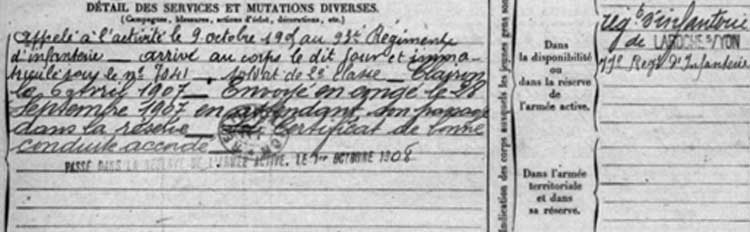 DÉTAIL DES SERVICES ET MUTATIONS DIVERSES.
(Campagnes, blessures, actions d'éclat, décorations, etc.)
appelé à l'activité le 9 octobre 1905 au 93e Régiment
d'infanterie _ arrivé au corps le dit jour et imma-
triculé sous le n° 7041 _ soldat de 2e classe _ Clairon
le 6 avril 1907 _ Envoyé en congé le 28
Septembre 1907 en attendant son passage
dans la réserve _ Certificat de bonne
conduite accordé _
PASSÉ DANS LA RÉSERVE DE L'ARMÉE ACTIVE. LE 1er OCTOBRE 1908
Indication des corps auxquels les jeunes gens sont
Dans
la disponibilité
ou
dans la réserve
de
l'armée active.
Dans l'armée
territoriale
et dans
sa réserve.
rég d'infanterie
de LAROCHE S/YON
Regt d'Infanterie